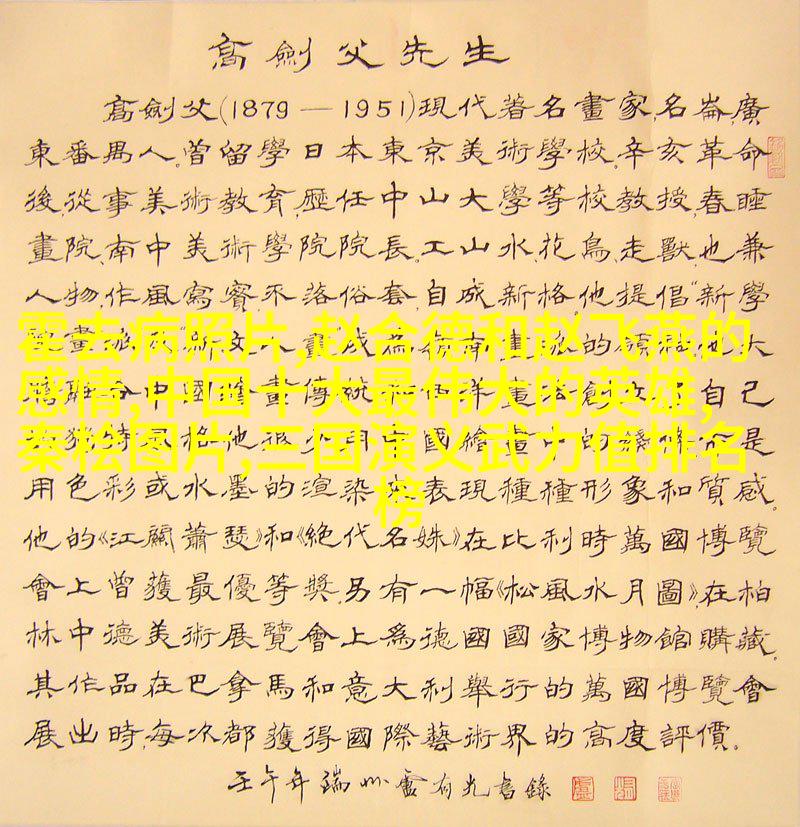 高劍父先生
高劍父(1879—1951)現代著名畫家,名崙,廣
東番禺人。曾留學日本東京美術學校。辛亥革命
後,從事美術教育,歷任中山大學等校教授,春睡
畫院、南中美術學院院長。工山水、花鳥、走獸,也兼
人物,作風寫實,不落俗套,自成新格。他提倡“新學
霍去病照片,赵合德和赵飞燕的
感情,中国十大最伟大的英雄,
秦桧图片,三国演义武力值排名
榜
用色彩或水墨的渲染,來表現種種形象和質感。
他的《江關蕭瑟》和《絕代名姝》在比利時萬國博覽
會上曾獲最優等獎。另有一幅《松風水月圖》,在柏
林中德美術展覽會上爲德國國家博物館購藏。
其作品在巴拿馬和意大利舉行的萬國博覽會
展出時,每次都獲得國際藝術界的高度評價。
壬午年端州盧有光書錄